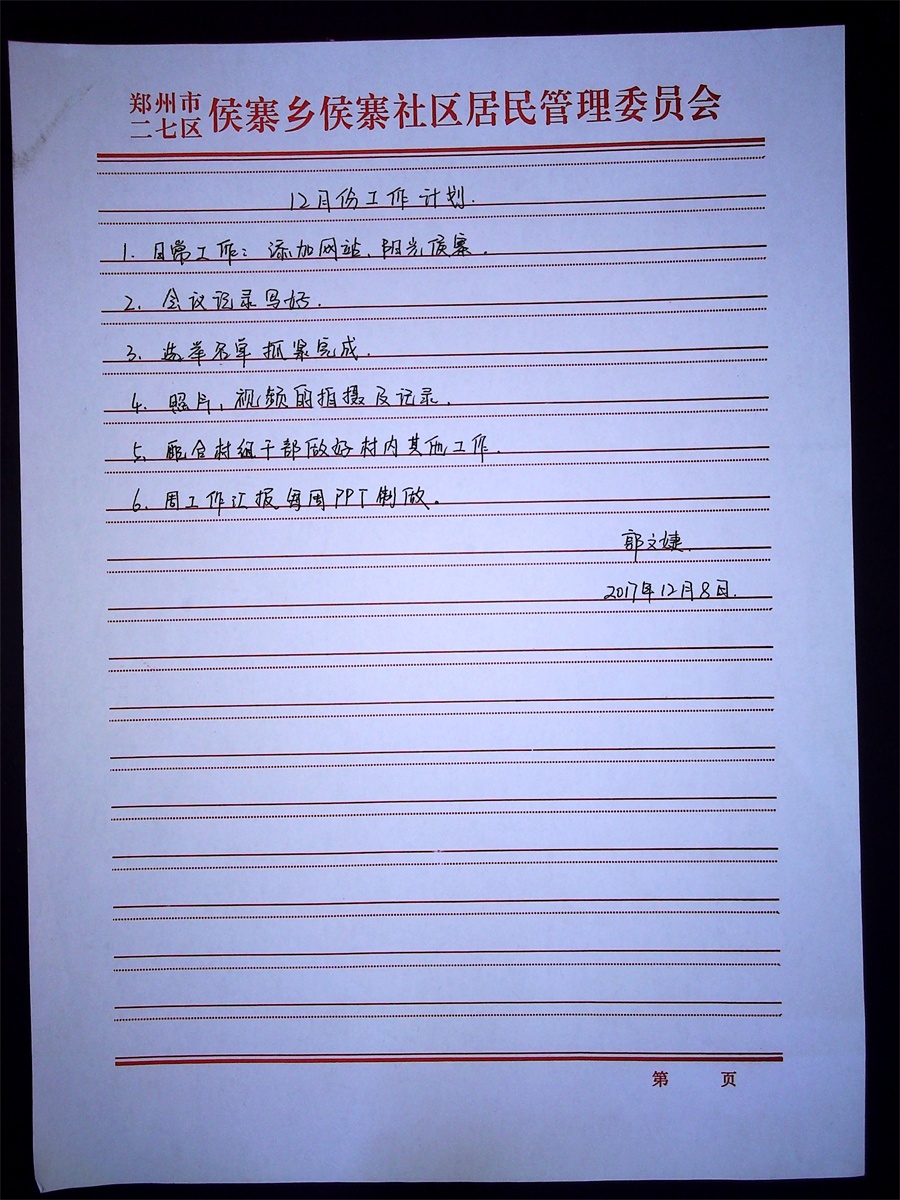 郑州市
二七区 侯寨乡侯寨社区居民管理委员会
12月份工作计划.
1. 日常工作: 添加网站、阳光侯寨.
2. 会议记录写好.
3. 选举名单抓紧完成.
4. 照片, 视频的拍摄及记录.
5. 配合村组干部做好村内其他工作.
6. 周工作汇报每周PPT制做。
郭文婕.
2017年12月8日.
第 页